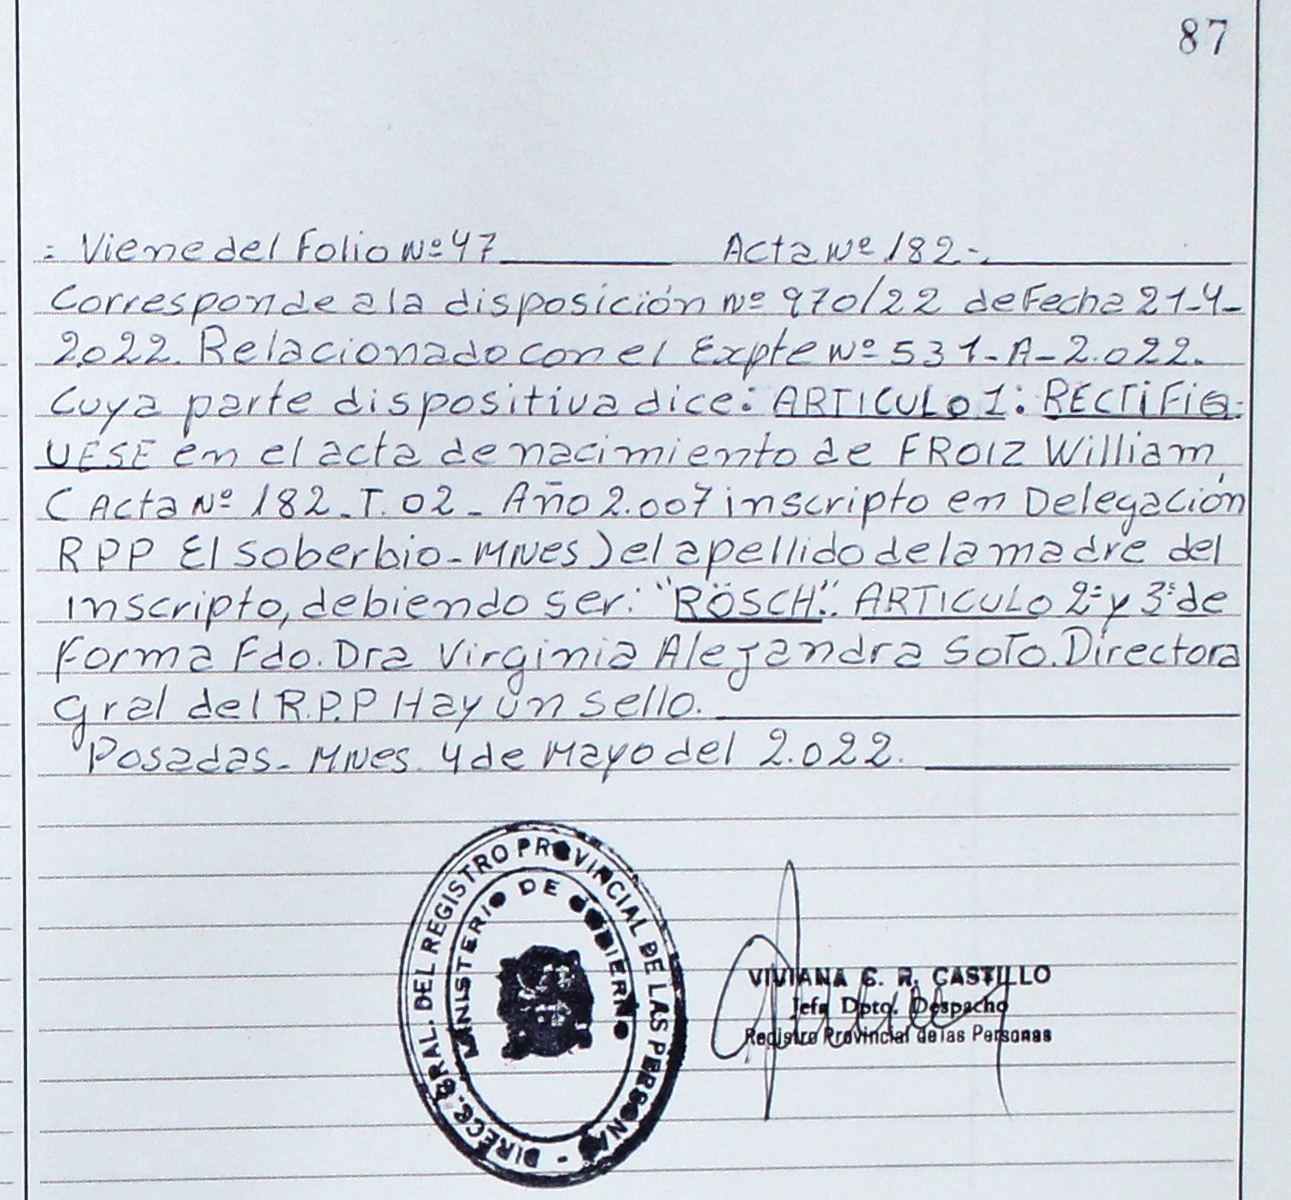 87
: Viene del Folio Nº 47 Acta Nº 182-.
Corresponde a la disposición Nº 970/22 de Fecha 21-4-
2.022. Relacionado con el Expte Nº 531-A-2.022.
Cuya parte dispositiva dice: ARTICULO 1: RECTIFIQ-
UESE en el acta de nacimiento de FROIZ William,
(Acta Nº 182-T.02- Año 2.007 inscripto en Delegación
RPP El Soberbio-MNES) el apellido de la madre del
inscripto, debiendo ser: "RÖSCH". ARTICULO 2º y 3º de
forma Fdo. Dra Virginia Alejandra Soto. Directora
Gral del R.P.P Hay un sello.
Posadas- MNES. 4 de Mayo del 2.022.
DIRECC. GRAL. DEL REGISTRO PROVINCIAL DE LAS PERSONAS -
MINISTERIO DE GOBIERNO
VIVIANA G. R. CASTILLO
Jefa Dpto. Despacho
Registro Provincial de las Personas